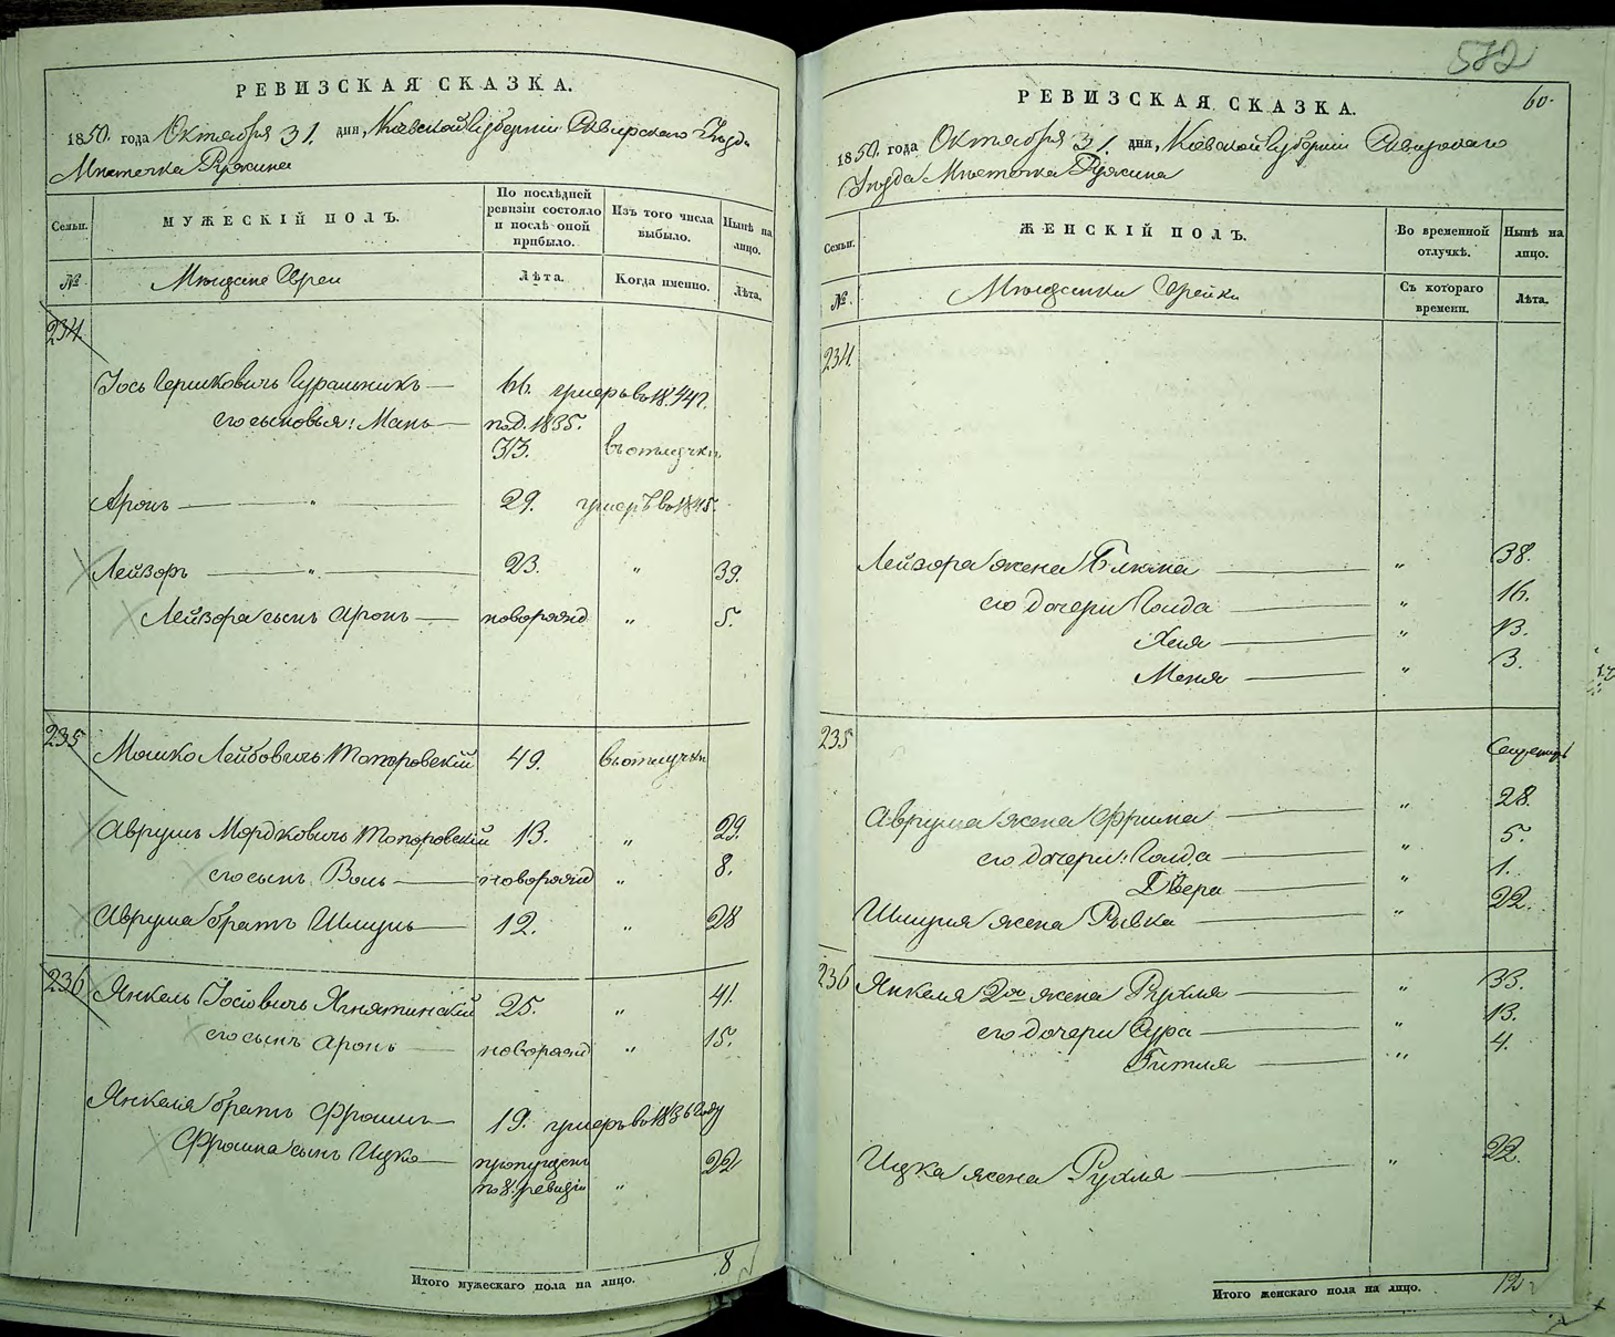 РЕВИЗСКАЯ СКАЗКА.
1850. года Октября 31. дня, Киевской Губерніи Сквирскаго Уѣзда
Мѣстечка Ружина
Семьи.
МУЖЕСКІЙ ПОЛЪ.
По послѣдней ревизіи состояло и послѣ оной прибыло.
Изъ того числа выбыло.
Нынѣ на лицо.
№
Мѣщане Евреи
Лѣта.
Когда именно.
Лѣта.
234.
Іось Гершковичь 66. умеръ въ 1844г.
его сыновья: Мань по Д. 1835.
33. въ отлучки
Аронъ " 29. умеръ въ 1845.
Лейзоръ " 23. " 39.
Лейзора сынъ Аронъ новорожд " 5.
235
Мошко Лейбовичь Топоровскій 49. въ отлучки
Аврумъ Мордковичь Топоровскій 13. " 29.
его сынъ Воль новорожд " 8.
Аврума братъ Шмуль 12. " 28
236
Янкель Іосіовичь Ягнятинскій 25. " 41.
его сынъ Аронъ новорожд " 15.
Янкеля братъ Фроимъ 19. умеръ въ 1836 Году
Фроима сынъ Ицко пропущенъ 22
по 8. ревизіи "
Итого мужескаго пола на лицо. 8
572
60.
РЕВИЗСКАЯ СКАЗКА.
1850. года Октября 31. дня, Киевской Губерніи Сквирскаго
Уѣзда Мѣстечка Ружина
Семьи.
ЖЕНСКІЙ ПОЛЪ.
Во временной отлучкѣ.
Нынѣ на лицо.
№.
Мѣщанки Еврейки
Съ котораго времени.
Лѣта.
234.
Лейзора жена Блюма " 38.
его дочери Голда " 16.
Хая " 13.
Меня " 3.
235
Аврума жена Фрима " 28.
его дочери: Голда " 5.
Двера " 1.
Шмуля жена Рывка " 22.
236 Янкеля 2ая жена Рухля " 33.
его дочери Сура " 13.
Гитля " 4.
Ицка жена Рухля " 22.
Итого женскаго пола на лицо. 12